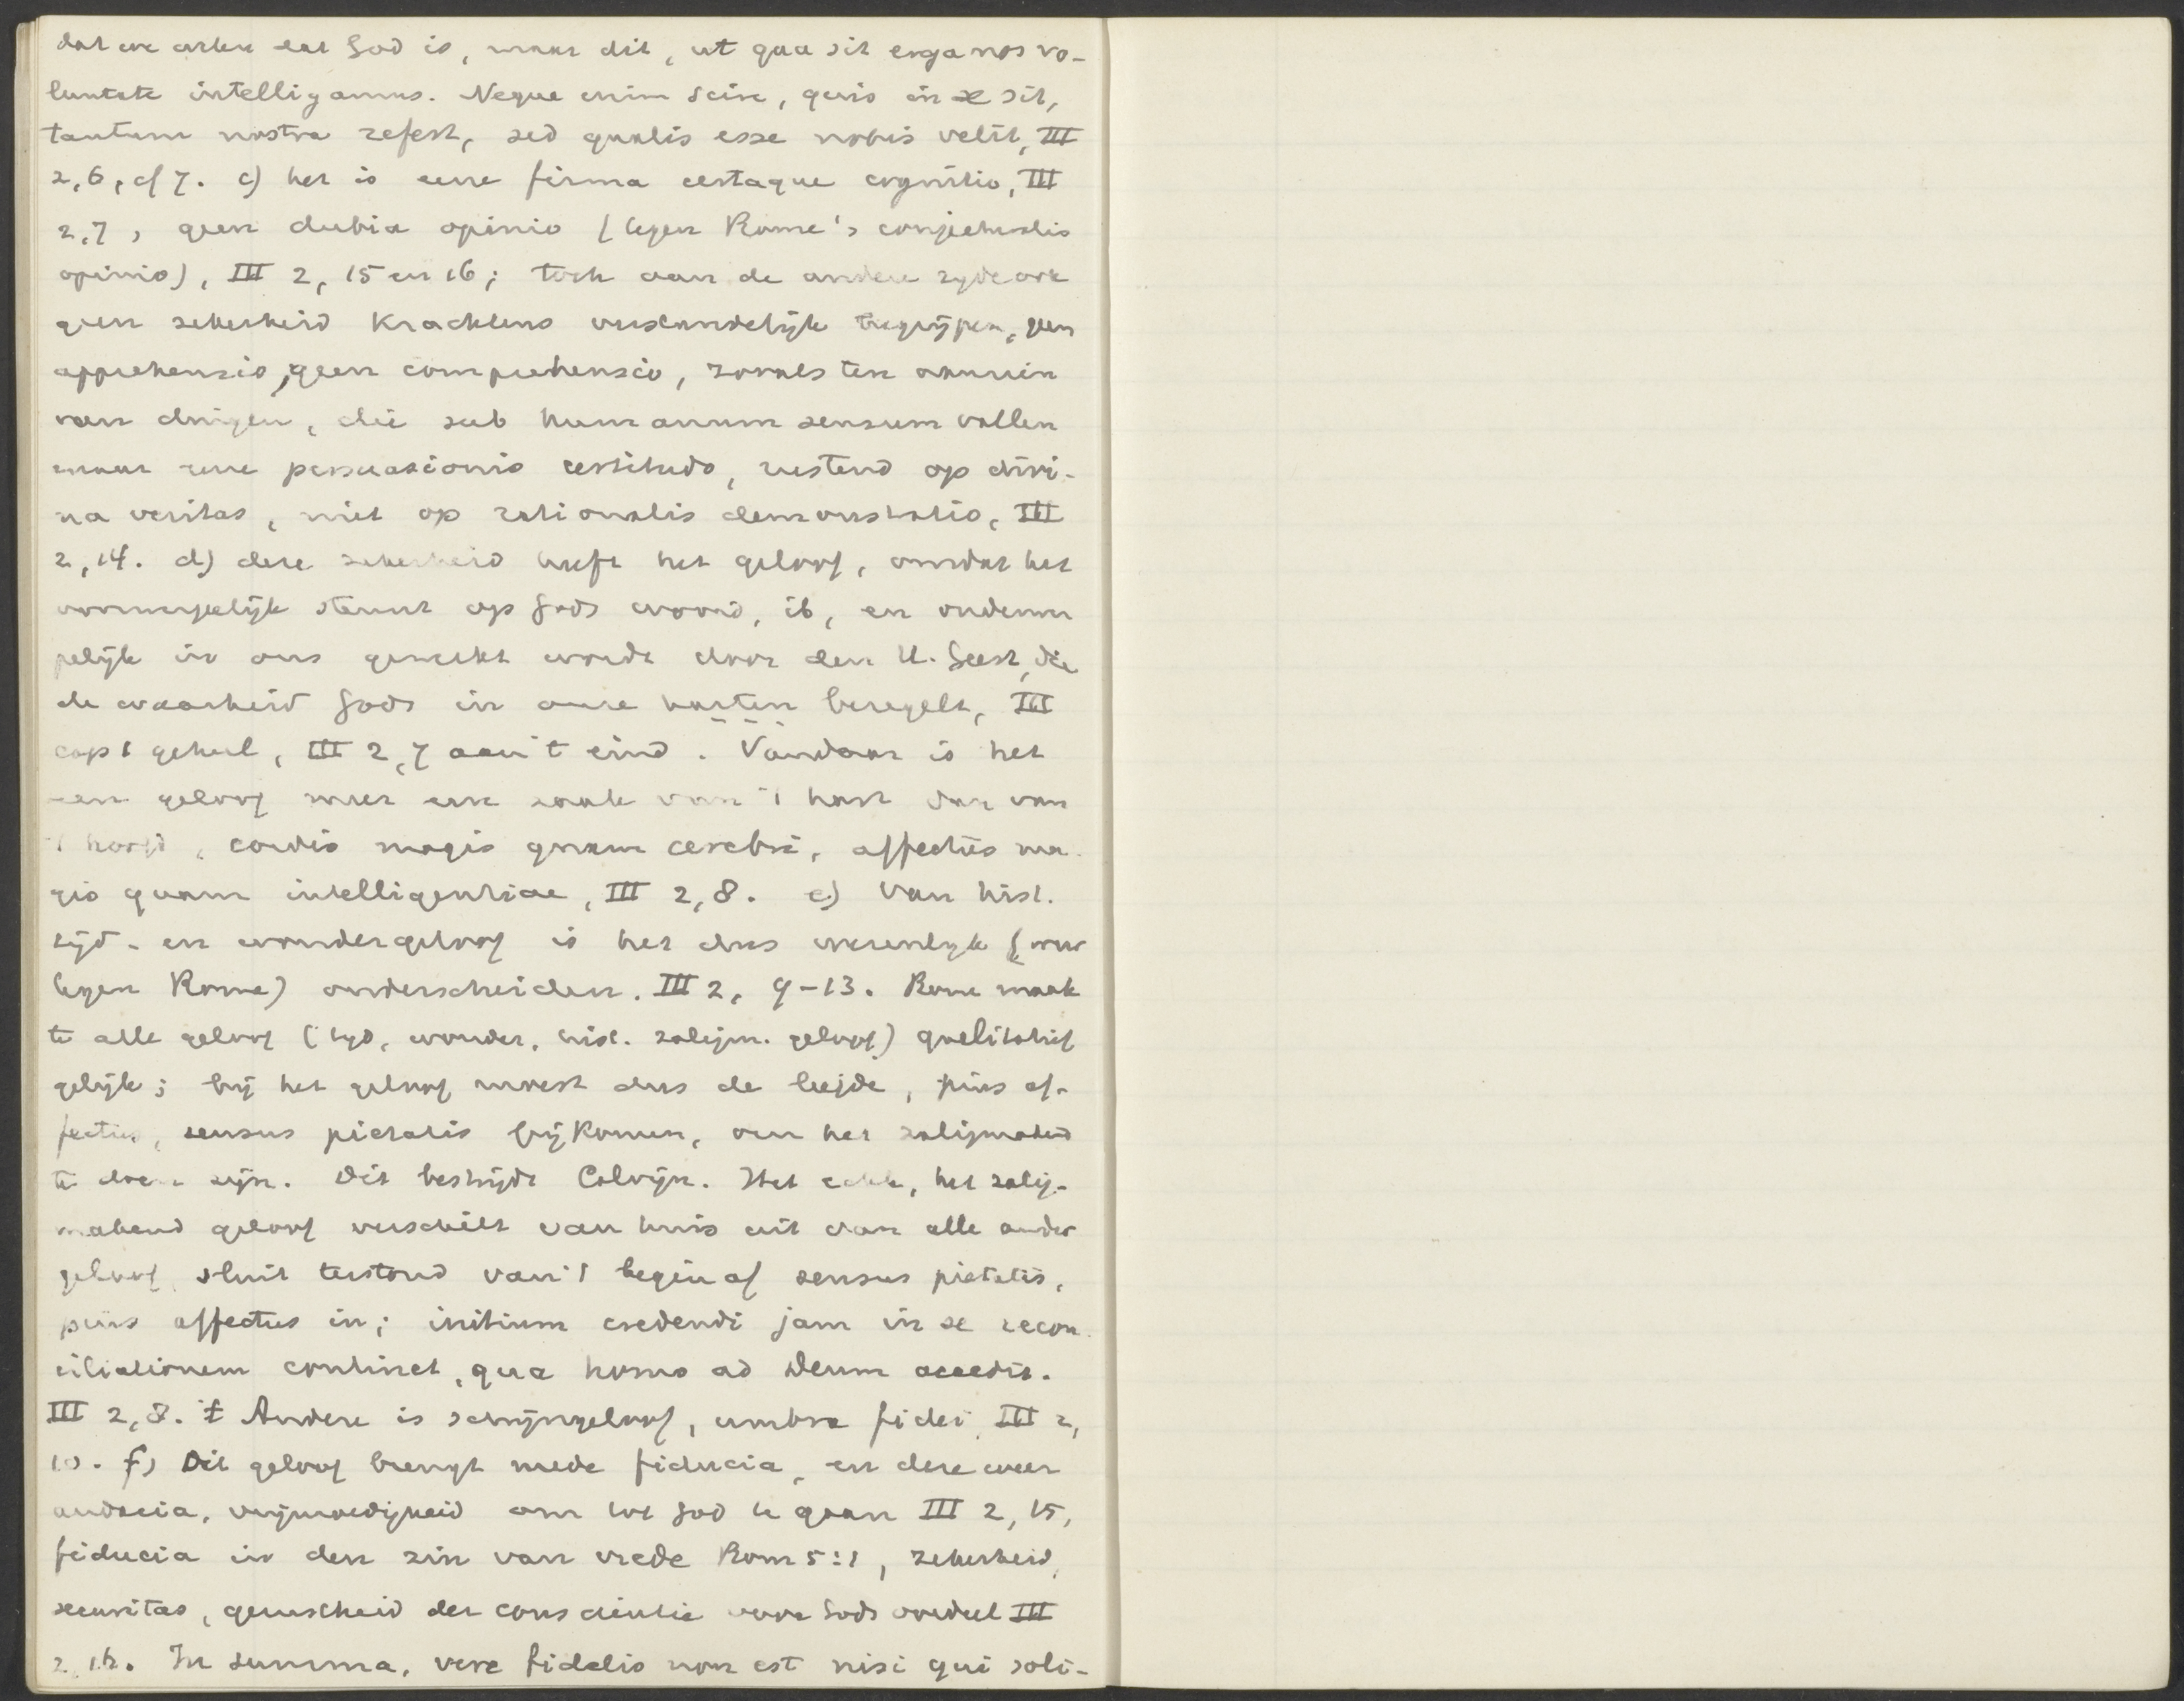 dat we weten dat God is, maar dit, ut qua sit erga nos vo-
luntate intelligamus. Neque enim scire, quis in se sit,
tantum nostra refert, sed qualis esse nobis velit, III
2,6, cf 7. c) het is eene firma certaque cognitio, III
2,7, geen dubia opinio (tegen Rome's conjecturalis
opinio), III 2, 15 en 16; toch aan de andere zyde ook
geen zekerheid krachtens verstandelijk begrijpen, geen
apprehensio, geen comprehensio, zooals ten aanzien
van dingen, die sub humanum sensum vallen
maar eene persuasionis certitudo, rustend op divi-
na veritas, niet op rationalis demonstratio, III
2,14. d) deze zekerheid heeft het geloof, omdat het
voorwerpelijk steunt op Gods woord, ib, en onderwer
pelijk in ons gewerkt wordt door den H. Geest, die
de waarheid Gods in onze harten bezegelt, III
cap 1 geheel, III 2,7 aan 't eind. Vandaar is het
een geloof meer een zaak van 't hart dan van
't hoofd, cordis magis quam cerebri, affectus ma-
gis quam intelligentiae, III 2,8. e) Van hist.
tijd- en wondergeloof is het dus wezenlyk (weer
tegen Rome) onderscheiden. III 2, 9-13. Rome maak
te alle geloof (tyd, wonder, hist. zaligm. geloof) qualitatief
gelijk; bij het geloof moest dus de liefde, pius af-
fectus, sensus pietatis bijkomen, om het zaligmakend
te doen zijn. Dit bestrijdt Calvijn. Het echte, het zalig-
makend geloof verschilt van huis uit van alle ander
geloof, sluit terstond van 't begin af sensus pietatis,
pius affectus in; initium credendi jam in se recon-
ciliationem continet, qua homo ad Deum accedit.
III 2,8. 't Andere is schijngeloof, umbra fidei, III 2,
10. f) Dit geloof brengt mede fiducia, en deze weer
audacia, vrijmoedigheid om tot God te gaan III 2, 15,
fiducia in den zin van vrede Rom 5:1, zekerheid,
securitas, gerustheid der conscientie voor Gods oordeel III
2,16. In summa, vere fidelis non est nisi qui soli-